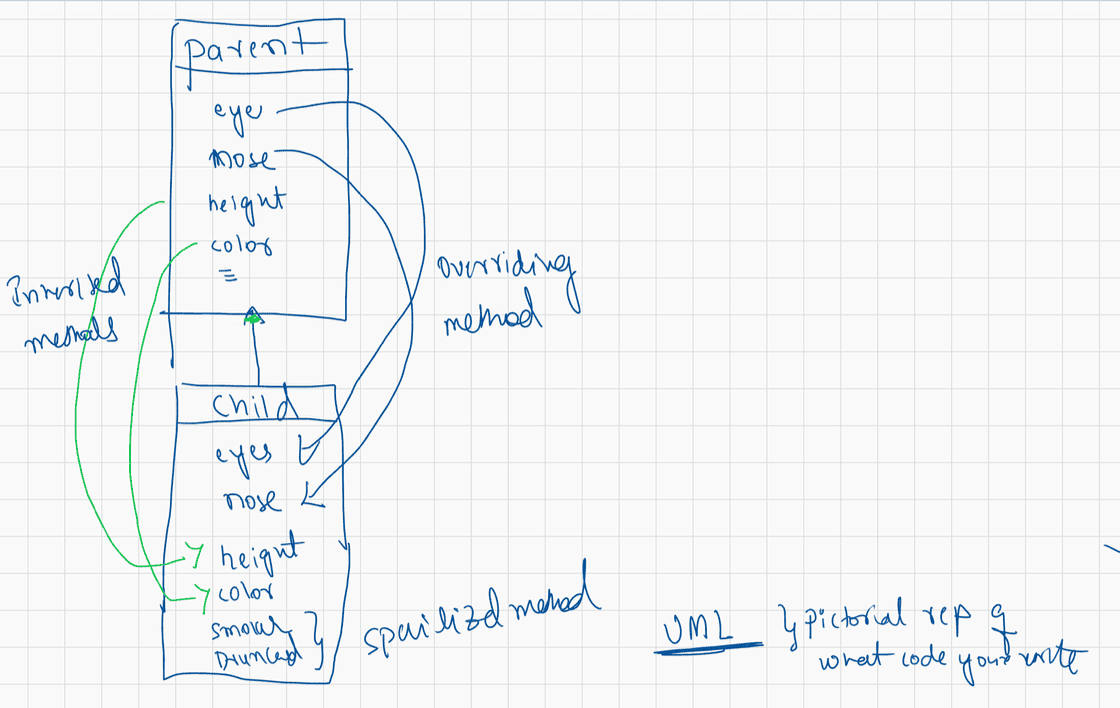 parent
eye
nose
height
color
Inherited
methods
overriding
method
child
eyes
nose
height
color
smoker
Drunked
spcilized method
UML } pictorial rep of
what code your write